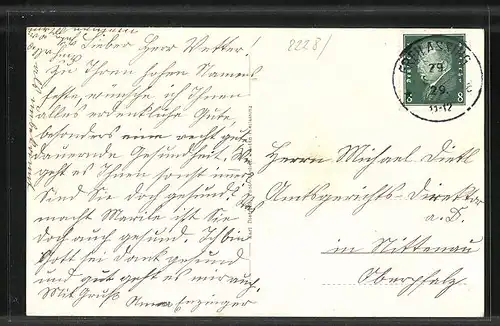 Lieber Herr Vetter!
Zu Ihren hohen Namens
feste wünsche ich Ihnen
alles erdenkliche Gute
besonders eine recht gute
dauernde Gesundheit. Wie
geht es Ihnen sonst immer
Sind Sie doch gesund? Was
macht Marie ist Sie
doch auch gesund. Ich bin
Gott sei dank gesund
und gut geht es mir auch
Mit Gruß
Anna Enzinger
2228/
FREILASSING
29.
11-12
8 8
Herrn Michael Dietl
Amtsgerichts-Direktor
a. D.
in Nittenau
Oberpfalz